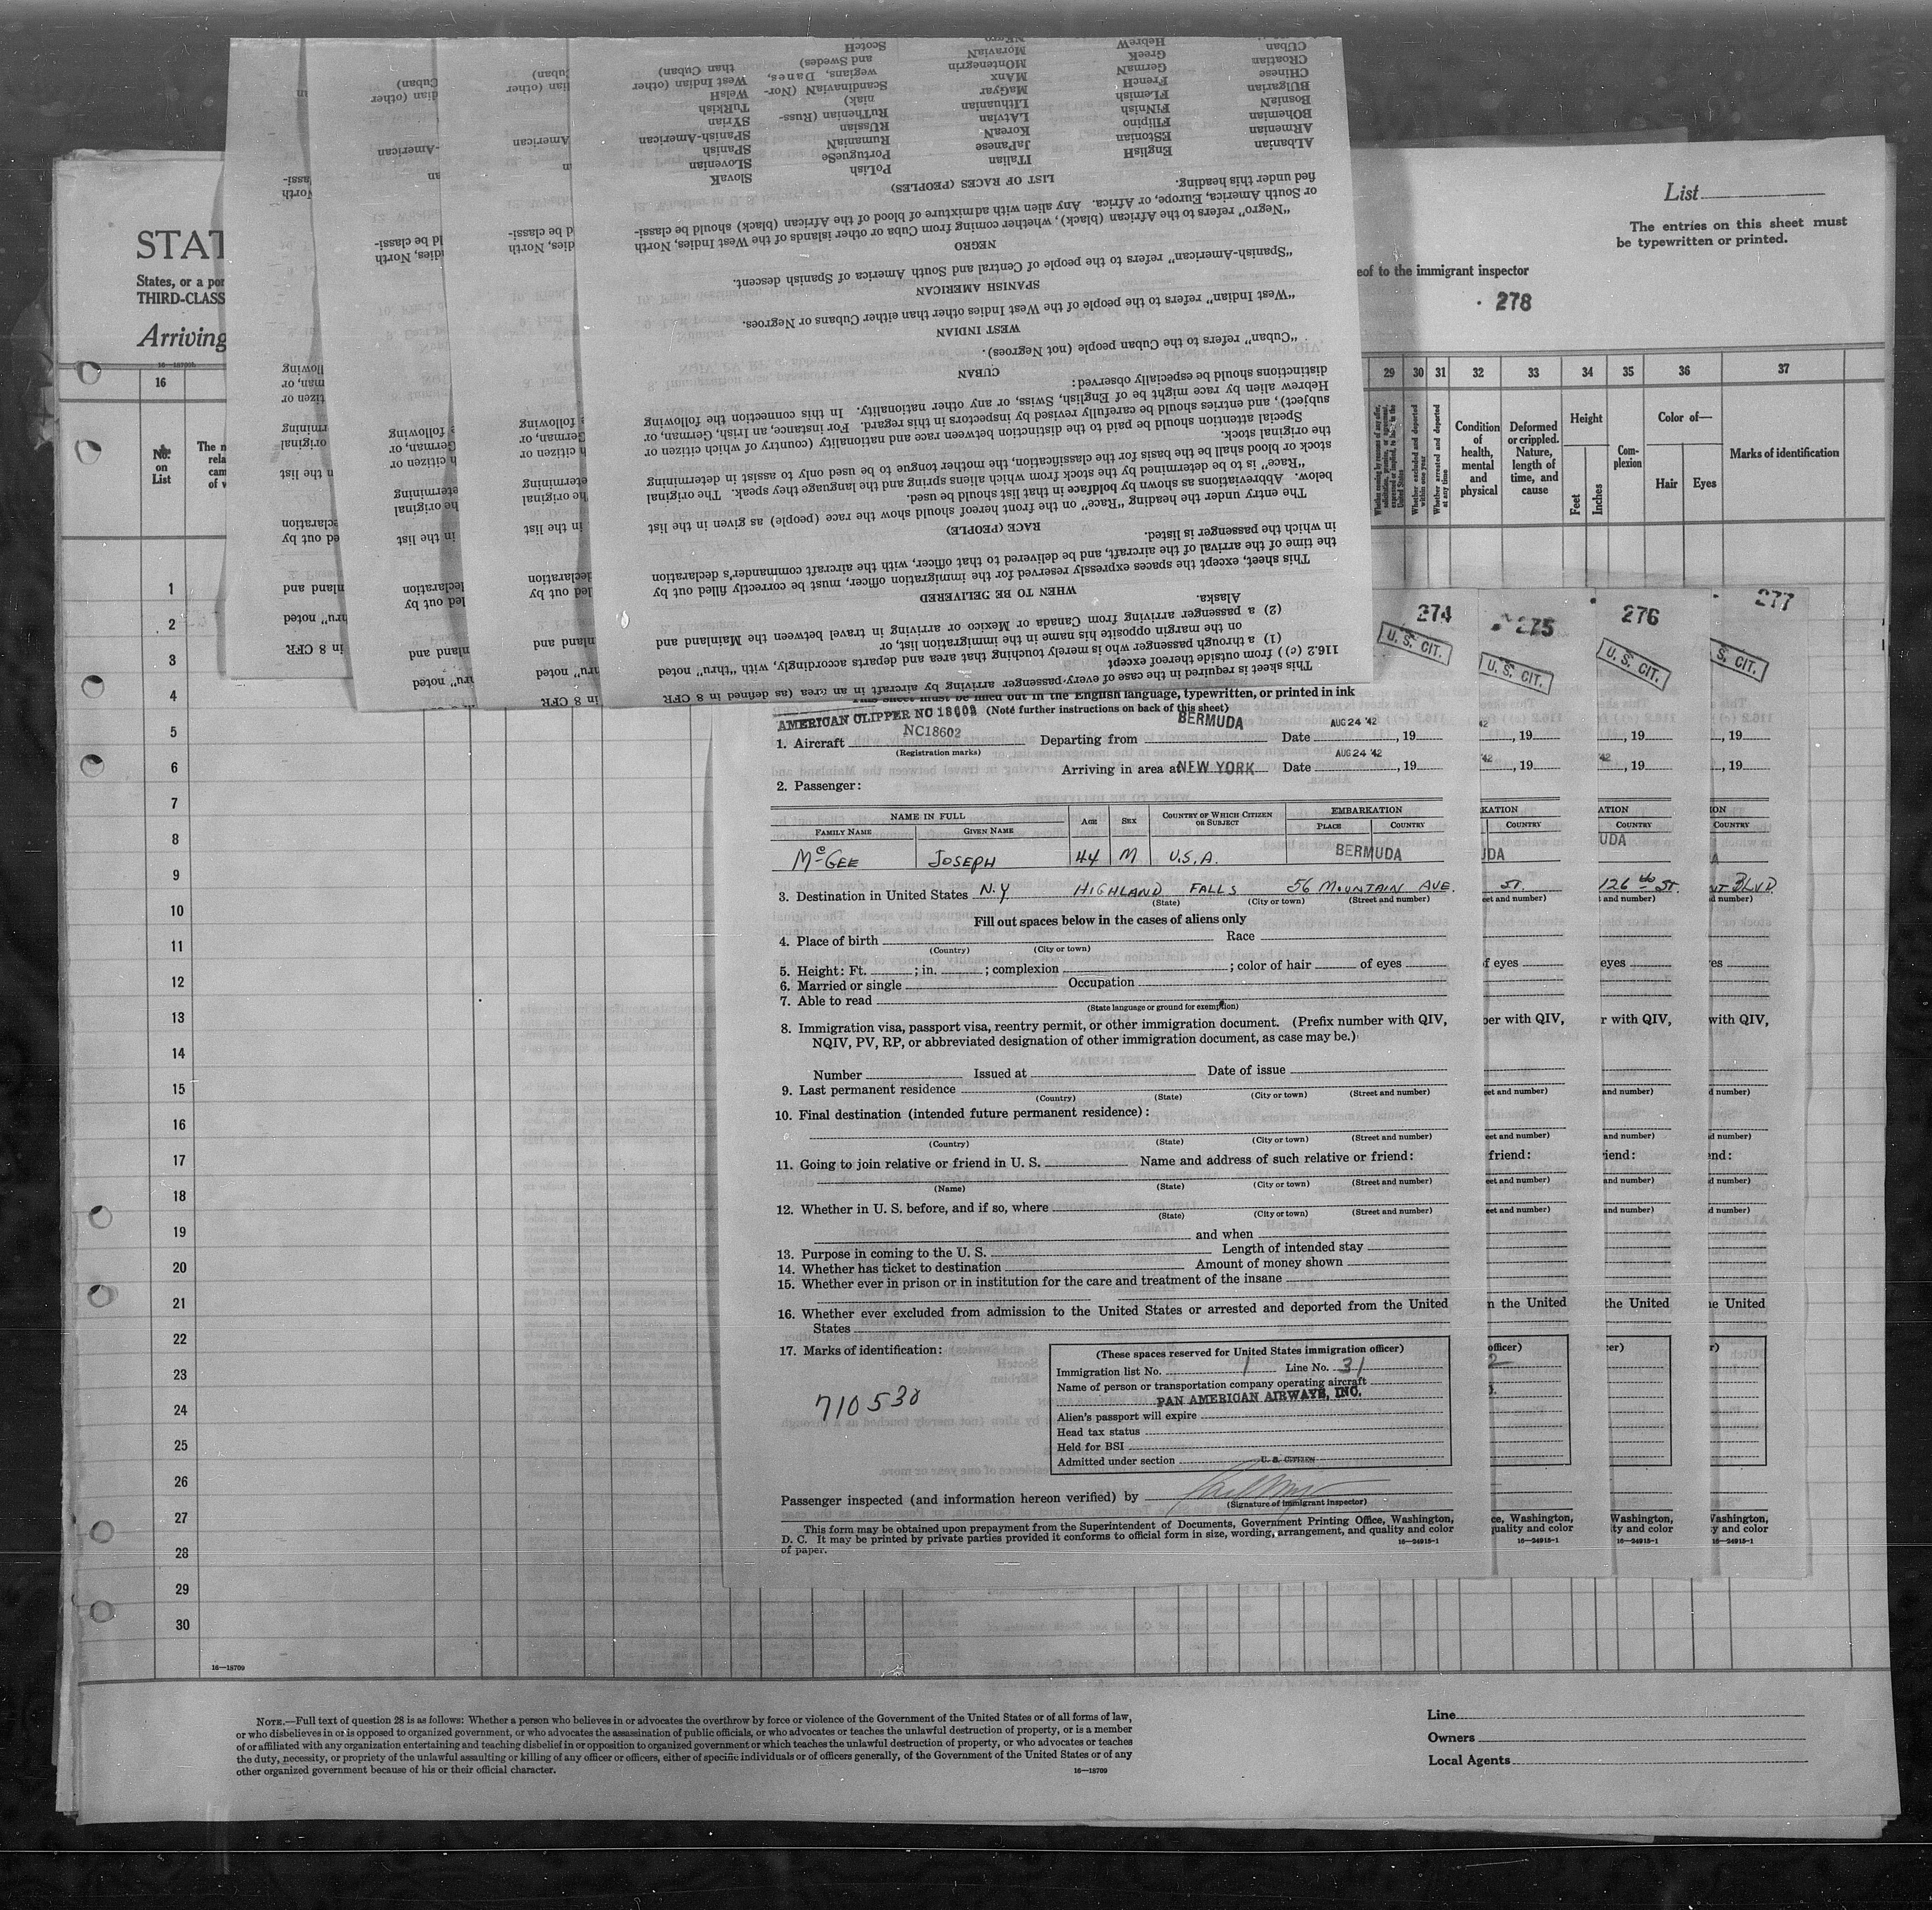 List
The entries on this sheet must
be typewritten or printed.
STAT
States, or a por
THIRD-CLASS
Arriving
eof to the immigrant inspector
278
16—18709
16
No.
on
List
The n
rela
cam
of w
29 30 31 32 33 34 35 36 37
Whether excluded and deported
within one year
Whether arrested and deported
at any time
Condition
of
health,
mental
and
physical
Deformed
or crippled.
Nature,
length of
time, and
cause
Height
Feet
Inches
Com-
plexion
Color of—
Hair
Eyes
Marks of identification
This sheet is required in the case of every passenger arriving by aircraft in an area (as defined in 8 CFR
116.2 (c)) from outside thereof except
(1) a through passenger who is merely touching that area and departs accordingly, with "thru" noted
on the margin opposite his name in the immigration list, or
(2) a passenger arriving from Canada or Mexico or arriving in travel between the Mainland and
Alaska.
WHEN TO BE DELIVERED
This sheet, except the spaces expressly reserved for the immigration officer, must be correctly filled out by
the time of the arrival of the aircraft, and be delivered to that officer, with the aircraft commander's declaration
in which the passenger is listed.
RACE (PEOPLE)
The entry under the heading "Race" on the front hereof should show the race (people) as given in the list
below. Abbreviations as shown by boldface in that list should be used.
"Race" is to be determined by the stock from which aliens spring and the language they speak. The original
stock or blood shall be the basis for the classification, the mother tongue to be used only to assist in determining
the original stock.
Special attention should be paid to the distinction between race and nationality (country of which citizen or
subject), and entries should be carefully revised by inspectors in this regard. For instance, an Irish, German, or
Hebrew alien by race might be of English, Swiss, or any other nationality. In this connection the following
distinctions should be especially observed:
CUBAN
"Cuban" refers to the Cuban people (not Negroes).
WEST INDIAN
"West Indian" refers to the people of the West Indies other than either Cubans or Negroes.
SPANISH AMERICAN
"Spanish-American" refers to the people of Central and South America of Spanish descent.
NEGRO
"Negro" refers to the African (black), whether coming from Cuba or other islands of the West Indies, North
or South America, Europe, or Africa. Any alien with admixture of blood of the African (black) should be classi-
fied under this heading.
LIST OF RACES (PEOPLES)
ALbanian EnglisH ITalian PoLish SlovaK
ARmenian EStonian JaPanese PortugueSe SLOvenian
BOhemian FIlipino KoreaN RumaniaN SPanish
BosniaN FINnish LAtvian RUssian SPanish-American
BUlgarian FLemish LIthuanian RuThenian (Russ- SYrian
niak) TuRkish
CHinese FrencH MaGyar ScandinaviaN (Nor- WelsH
CRoatian GermaN MAnx wegians, Danes, West Indian (other
CUban GreeK MOntenegrin and Swedes) than Cuban)
HebreW MoraviaN ScotcH
274
U. S. CIT.
275
U. S. CIT.
276
U. S. CIT.
277
S. CIT.
This sheet must be filled out in the English language, typewritten, or printed in ink
(Note further instructions on back of this sheet)
AMERICAN CLIPPER NC 18602
NC18602
BERMUDA
AUG 24 '42
1. Aircraft Departing from Date , 19
(Registration marks)
AUG 24 '42
Arriving in area at NEW YORK Date , 19
2. Passenger:
NAME IN FULL
FAMILY NAME
GIVEN NAME
AGE
SEX
COUNTRY OF WHICH CITIZEN
OR SUBJECT
EMBARKATION
PLACE
COUNTRY
McGEE JOSEPH 44 M U.S.A. BERMUDA
3. Destination in United States N.Y HIGHLAND FALLS 56 MOUNTAIN AVE.
(State) (City or town) (Street and number)
ST.
126 ST.
BLVD
Fill out spaces below in the cases of aliens only
4. Place of birth Race
(Country) (City or town)
5. Height: Ft. ; in. ; complexion ; color of hair of eyes
6. Married or single Occupation
7. Able to read
(State language or ground for exemption)
8. Immigration visa, passport visa, reentry permit, or other immigration document. (Prefix number with QIV,
NQIV, PV, RP, or abbreviated designation of other immigration document, as case may be.)
Number Issued at Date of issue
9. Last permanent residence
(Country) (State) (City or town) (Street and number)
10. Final destination (intended future permanent residence):
(Country) (State) (City or town) (Street and number)
11. Going to join relative or friend in U. S. Name and address of such relative or friend:
(Name) (State) (City or town) (Street and number)
12. Whether in U. S. before, and if so, where
(State) (City or town) (Street and number)
and when
13. Purpose in coming to the U. S. Length of intended stay
14. Whether has ticket to destination Amount of money shown
15. Whether ever in prison or in institution for the care and treatment of the insane
16. Whether ever excluded from admission to the United States or arrested and deported from the United
States
17. Marks of identification:
710530
(These spaces reserved for United States immigration officer)
Immigration list No. 1 Line No. 31
Name of person or transportation company operating aircraft
PAN AMERICAN AIRWAYS, INC.
Alien's passport will expire
Head tax status
Held for BSI
Admitted under section U. S. CITIZEN
Passenger inspected (and information hereon verified) by
(Signature of immigrant inspector)
This form may be obtained upon prepayment from the Superintendent of Documents, Government Printing Office, Washington,
D. C. It may be printed by private parties provided it conforms to official form in size, wording, arrangement, and quality and color
of paper.
16—24915-1
1
2
3
4
5
6
7
8
9
10
11
12
13
14
15
16
17
18
19
20
21
22
23
24
25
26
27
28
29
30
16—18709
NOTE.—Full text of question 28 is as follows: Whether a person who believes in or advocates the overthrow by force or violence of the Government of the United States or of all forms of law,
or who disbelieves in or is opposed to organized government, or who advocates the assassination of public officials, or who advocates or teaches the unlawful destruction of property, or is a member
of or affiliated with any organization entertaining and teaching disbelief in or opposition to organized government or which teaches the unlawful destruction of property, or who advocates or teaches
the duty, necessity, or propriety of the unlawful assaulting or killing of any officer or officers, either of specific individuals or of officers generally, of the Government of the United States or of any
other organized government because of his or their official character.
16—18709
Line
Owners
Local Agents